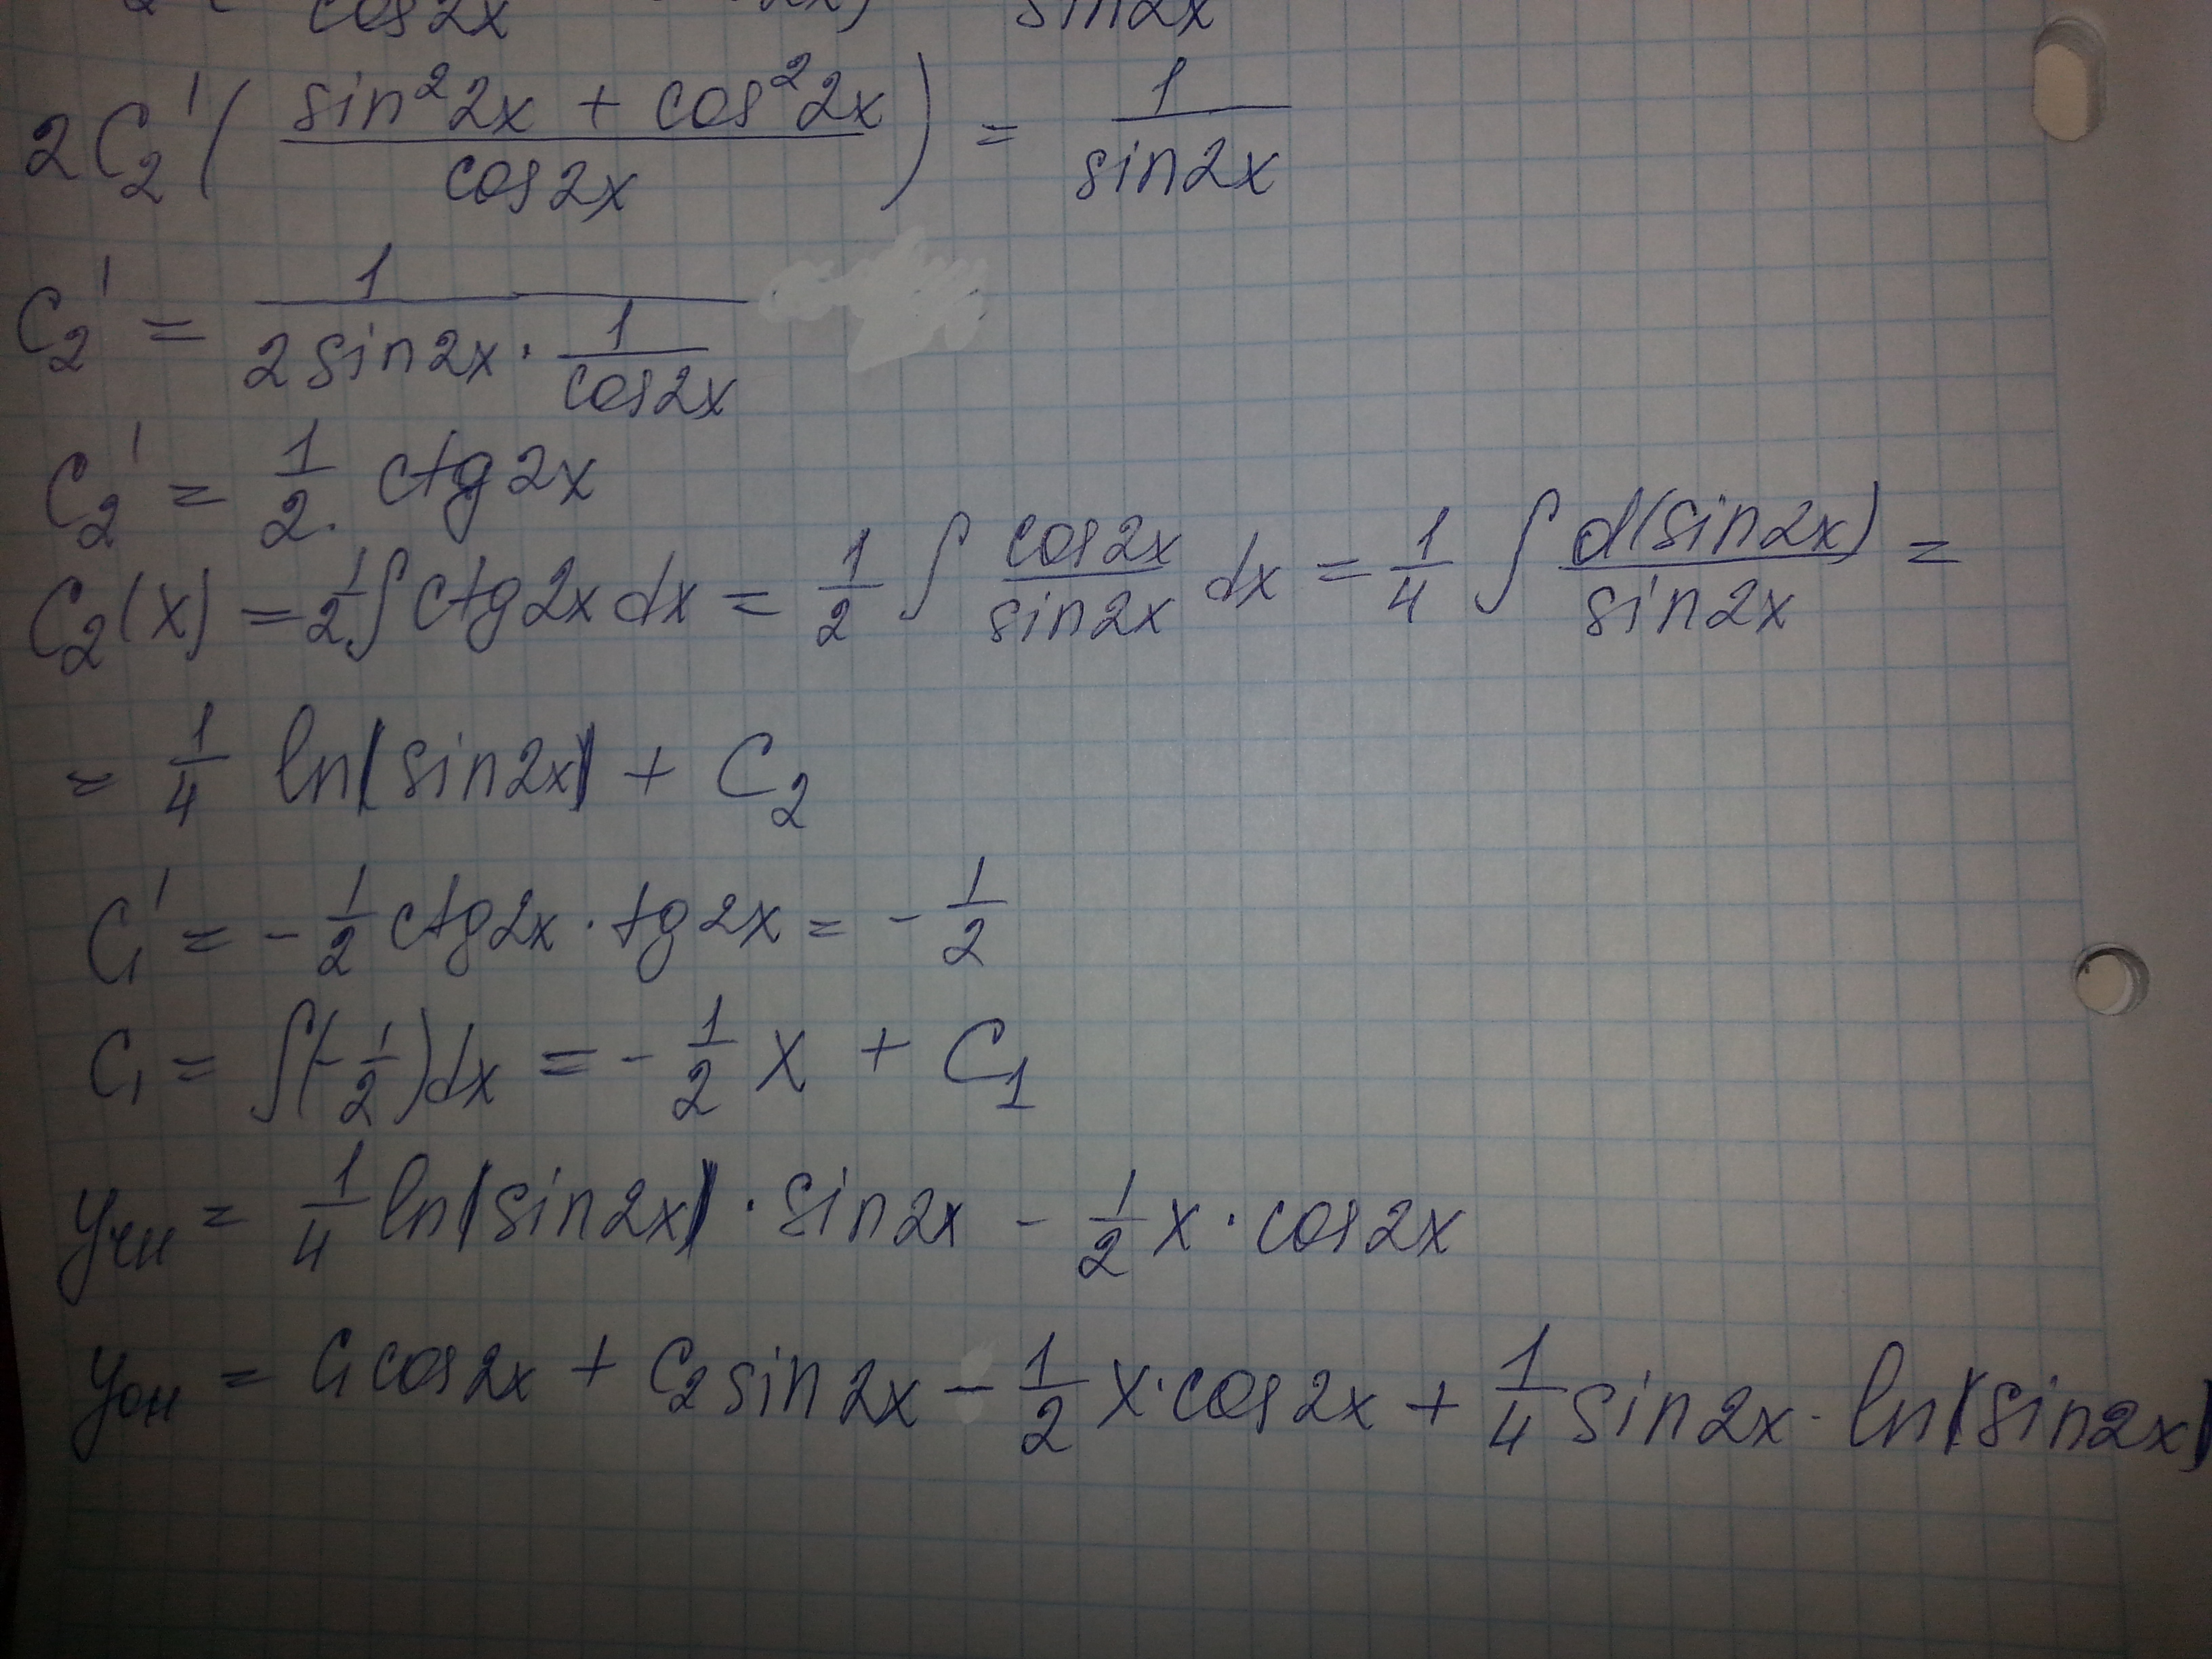 cos2x sin2x
2C₂'( (sin²2x + cos²2x)/cos2x ) = 1/sin2x
C₂' = 1/(2sin2x · 1/cos2x)
C₂' = 1/2 · ctg2x
C₂(x) = 1/2 ∫ctg2x dx = 1/2 ∫ cos2x/sin2x dx = 1/4 ∫ d(sin2x)/sin2x =
= 1/4 ln|sin2x| + C₂
C₁' = -1/2 ctg2x · tg2x = -1/2
C₁ = ∫(-1/2)dx = -1/2 x + C₁
yчн = 1/4 ln|sin2x| · sin2x - 1/2 x · cos2x
yон = C₁cos2x + C₂sin2x - 1/2 x · cos2x + 1/4 sin2x · ln|sin2x|